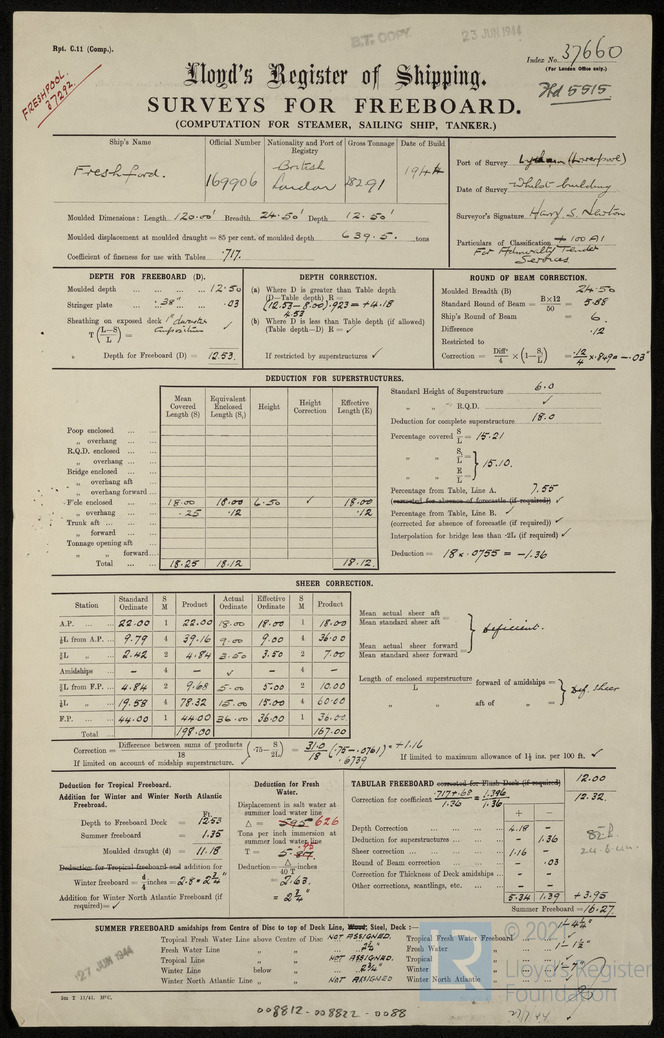 Rpt. C.11 (Comp.).
B.T. COPY
23 JUN 1944
Index No. 37660
(For London Office only.)
FRESHPOOL.
37292.
Lloyd's Register of Shipping.
5515
SURVEYS FOR FREEBOARD.
(COMPUTATION FOR STEAMER, SAILING SHIP, TANKER.)
Ship's Name Official Number Nationality and Port of Registry Gross Tonnage Date of Build
Freshford. 169906 British London 282.91 1944
Port of Survey Lytham (Liverpool)
Date of Survey Whilst building
Surveyor's Signature Harry S. Newton
Particulars of Classification + 100 A1
For Admiralty Tender
Services
Moulded Dimensions: Length 120.00' Breadth 24.50' Depth 12.50'
Moulded displacement at moulded draught = 85 per cent. of moulded depth 639.5. tons
Coefficient of fineness for use with Tables .717.
DEPTH FOR FREEBOARD (D).
Moulded depth ... 12.50
Stringer plate ... .38" ... .03
Sheathing on exposed deck 1" composition
T (L–S / L) =
Depth for Freeboard (D) = 12.53.
DEPTH CORRECTION.
(a) Where D is greater than Table depth
(D–Table depth) R =
(12.53 – 8.00) .923 = + 4.18
4.53
(b) Where D is less than Table depth (if allowed)
(Table depth–D) R = ✓
If restricted by superstructures ✓
ROUND OF BEAM CORRECTION.
Moulded Breadth (B) 24.50
Standard Round of Beam = B×12 / 50 = 5.88
Ship's Round of Beam = 6.
Difference .12
Restricted to
Correction = Diffce / 4 × (1 – S₁ / L) = .12 / 4 × .849 = – .03"
DEDUCTION FOR SUPERSTRUCTURES.
Mean Covered Length (S) Equivalent Enclosed Length (S₁) Height Height Correction Effective Length (E)
Poop enclosed ... ...
„ overhang ... ...
R.Q.D. enclosed ... ...
„ overhang ... ...
Bridge enclosed ... ...
„ overhang aft ...
„ overhang forward ...
F'cle enclosed ... 18.00 18.00 6.50 ✓ 18.00
„ overhang ... .25 .12 .12
Trunk aft ... ...
„ forward ... ...
Tonnage opening aft ...
„ „ forward ...
Total ... 18.25 18.12 18.12.
Standard Height of Superstructure 6.0
„ „ R.Q.D. ✓
Deduction for complete superstructure 18.0
Percentage covered S / L = 15.21
„ „ S₁ / L =
„ „ E / L = } 15.10.
Percentage from Table, Line A. 7.55
(corrected for absence of forecastle (if required)) ✓
Percentage from Table, Line B. ✓
(corrected for absence of forecastle (if required)) ✓
Interpolation for bridge less than ·2L (if required) ✓
Deduction = 18 × .0755 = –1.36
SHEER CORRECTION.
Station Standard Ordinate S M Product Actual Ordinate Effective Ordinate S M Product
A.P. ... 22.00 1 22.00 18.00 18.00 1 18.00
⅙L from A.P. ... 9.79 4 39.16 9.00 9.00 4 36.00
⅓L „ ... 2.42 2 4.84 3.50 3.50 2 7.00
Amidships ... – 4 – ✓ – 4 –
⅓L from F.P. ... 4.84 2 9.68 5.00 5.00 2 10.00
⅙L „ ... 19.58 4 78.32 15.00 15.00 4 60.00
F.P. ... 44.00 1 44.00 36.00 36.00 1 36.00
Total ... 198.00 167.00
Mean actual sheer aft =
Mean standard sheer aft
Mean actual sheer forward =
Mean standard sheer forward
} deficient.
Length of enclosed superstructure / L forward of amidships =
„ „ aft of „ =
} Def. sheer
Correction = Difference between sums of products / 18 (·75 – S / 2L) = 31.0 / 18 (.75 – .0761) = + 1.16
.6739
If limited on account of midship superstructure. ✓
If limited to maximum allowance of 1½ ins. per 100 ft. ✓
Deduction for Tropical Freeboard.
Addition for Winter and Winter North Atlantic Freeboard.
Ft.
Depth to Freeboard Deck = 12.53
Summer freeboard = 1.35
Moulded draught (d) = 11.18
Deduction for Tropical freeboard and addition for
Winter freeboard = d / 4 inches = 2.8 = 2¾"
Addition for Winter North Atlantic Freeboard (if required) = ✓
Deduction for Fresh Water.
Displacement in salt water at summer load water line
Δ = 595 626
Tons per inch immersion at summer load water line
T = 5.87
Deduction = Δ / 40 T inches
= 2.63.
= 2¾"
TABULAR FREEBOARD corrected for Flush Deck (if required) 12.00
Correction for coefficient .717 + .68 / 1.36 = 1.396 / 1.36 12.32.
+ –
Depth Correction ... 4.18 –
Deduction for superstructures ... – 1.36
Sheer correction ... 1.16 –
Round of Beam correction ... – .03
Correction for Thickness of Deck amidships ... – –
Other corrections, scantlings, etc. ... – –
5.34 1.39 + 3.95
Summer Freeboard = 16.27
SUMMER FREEBOARD amidships from Centre of Disc to top of Deck Line, Wood, Steel, Deck :— 1'– 4¼"
Tropical Fresh Water Line above Centre of Disc NOT ASSIGNED. Tropical Fresh Water Freeboard ✓
Fresh Water Line „ „ ... Fresh Water „ 1'– 1½"
Tropical Line „ „ NOT ASSIGNED. Tropical „ ✓
Winter Line below „ ... 2¾" Winter „ 1'– 7"
Winter North Atlantic Line „ „ ... NOT ASSIGNED Winter North Atlantic „
27 JUN 1944
2m T 11/41. MFC.
© 202
LR
Lloyd's Register
Foundation
008812 - 008822 - 0088